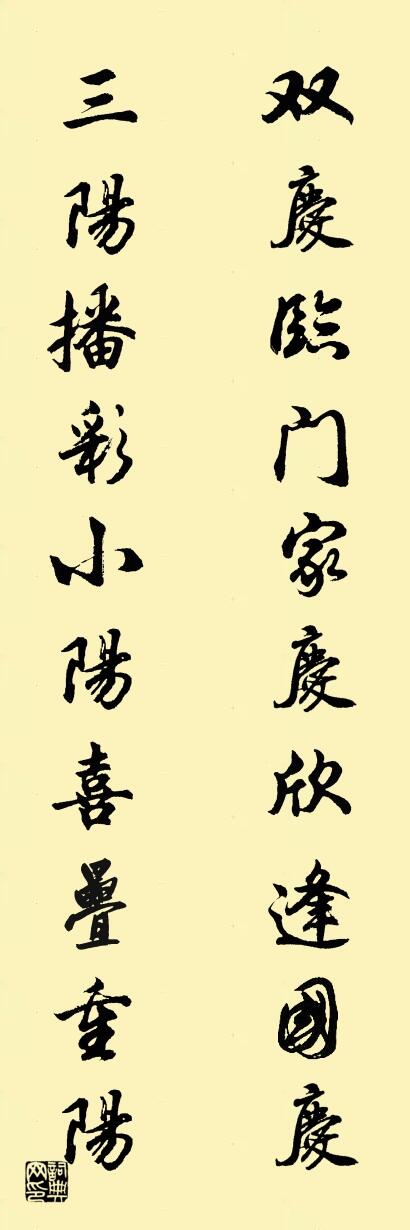 双慶臨门家慶欣逢國慶
三陽播彩小陽喜疊重陽
詞典网印